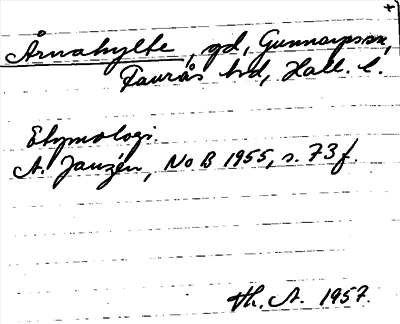 +
Årnahylte, gd, Gunnarpssn,
Faurås hd, Hall. l.
Etymologi.
A. Janzén, No B 1955, s. 73 f.
Th. A. 1957.